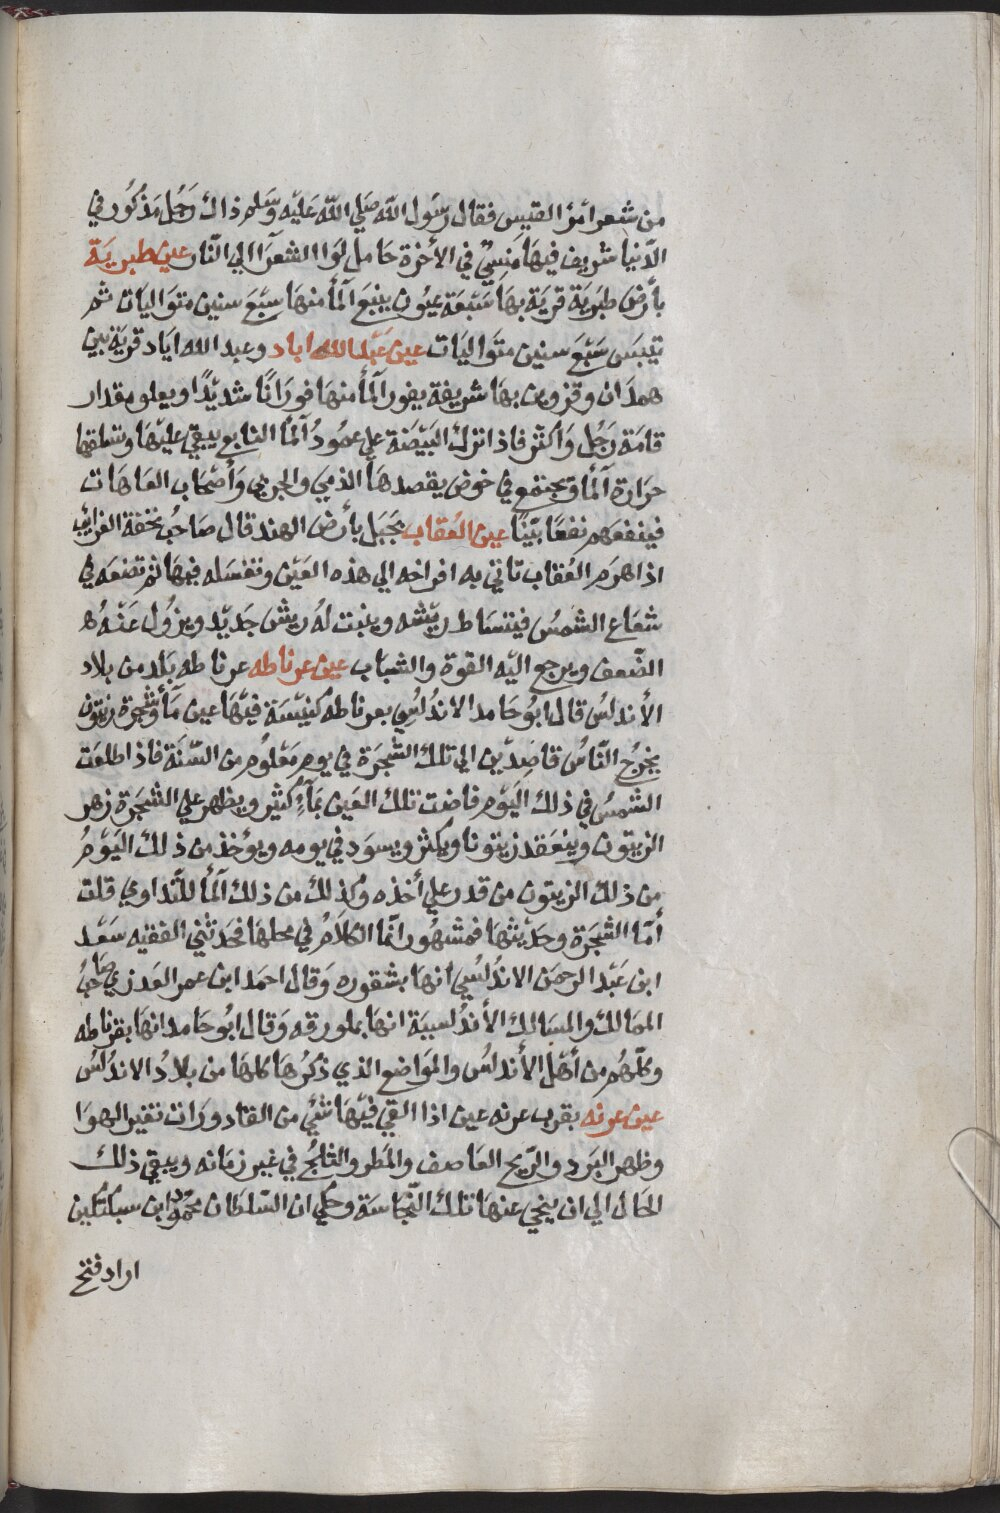 من شعر امرْ القيس فقال رَسُول اللّه صَلي اللّه عَليْه وَسَلم ذاك رَجُل مَذكُور في
الدّنيا شريف فيهَا مَنسِيٌ في الآخرة حَامل لوَا الشعرَآ الي النّار عين طبريَة
بأرض طبَريَة قريَة بهَا سَبْعَة عيُون ينبَع المآ منهَا سَبْعَ سنين متوَاليَات ثم
تيبَس سَبْعَ سنين متوَاليَات عين عَبْد الله اباد وعبد الله اباد قريَة بين
همدَان وقزوين بهَا شريفة يفور المآ منهَا فورَانًا شديْدًا ويعلو مقدار
قامَة رَجُل وَاكثر فاذا ترك البَيْضَة علي عمُودُ المآ النابع يبقي عليْهَا وتسلقها
حرَارة المآ ويجتمع في حوض يقصدهَا الذمي والجربي وَأصْحَاب العَاهَات
فينفعهم نفعًا بَيّنًا عين العُقاب بجَبَل بأرض الهند قال صَاحبُ تحْفة الغرَائب
اذا هَرم العُقاب تأتي به افراخه الي هذه العَيْن وتغسَله فيهَا ثم تضعَه في
شعَاع الشمسُ فيتسَاط ريْشه وينبت لهُ ريش جَديْد ويزوُل عَنْهُ
الضّعف ويرجع اليْه القوة والشبَاب عين عرناطه عرناطه بَلد من بلاد
الأندلسُ قال ابوُ حَامد الاندُلسُي بعرناطه كنيْسَة فيْهَا عين مَآ وَشجَرة زيتون
يخرُج النّاسُ قاصدّين الي تلك الشّجَرَة في يوم مَعْلوُم من السّنَة فاذا طلعَت
الشمسُ في ذلك اليَوْم فاضت تلك العَين بمآءٍ كثير ويظهر علي الشجَرَة زهر
الزيتون وينعَقد زيتونا ويكثر ويسوَد في يومه ويؤخذ من ذلك اليَوْمُ
من ذلك الزيتون من قدر علي أخذه وكذلك من ذلك المآ للتّداوي قلت
أمّا الشّجَرَة وحَديْثهَا فمشهُور انمّا الكلاَمُ في محلهَا فحَدثني الفقيه سَعْد
ابن عَبْد الرحمَن الاندُلسُي انهَا بشقوره وَقال احمَد ابن عمر العَدري صَاحبُ
الممَالك والمسَالك الأندُلسيَة انهَا بملورقه وَقال ابُو حَامد انهَا بقرناطه
وكلّهُم من أهْل الأندلسُ والمَوَاضع الذي ذكرُهَا كلهَا من بلاَدُ الاندُلسُ
عين عرنه بقرب عرنه عين اذا القي فيْهَا شيْي من القادورَات تغير الهوَا
وظهر البَرد والرّيح العَاصف والمَطر والثلجُ في غير زمَانه ويبقي ذلك
الحَال الي ان ينحي عنهَا تلك النّجَاسَة وحُكي ان السّلطَان محَمُود ابن سبكتكين
اراد فتح